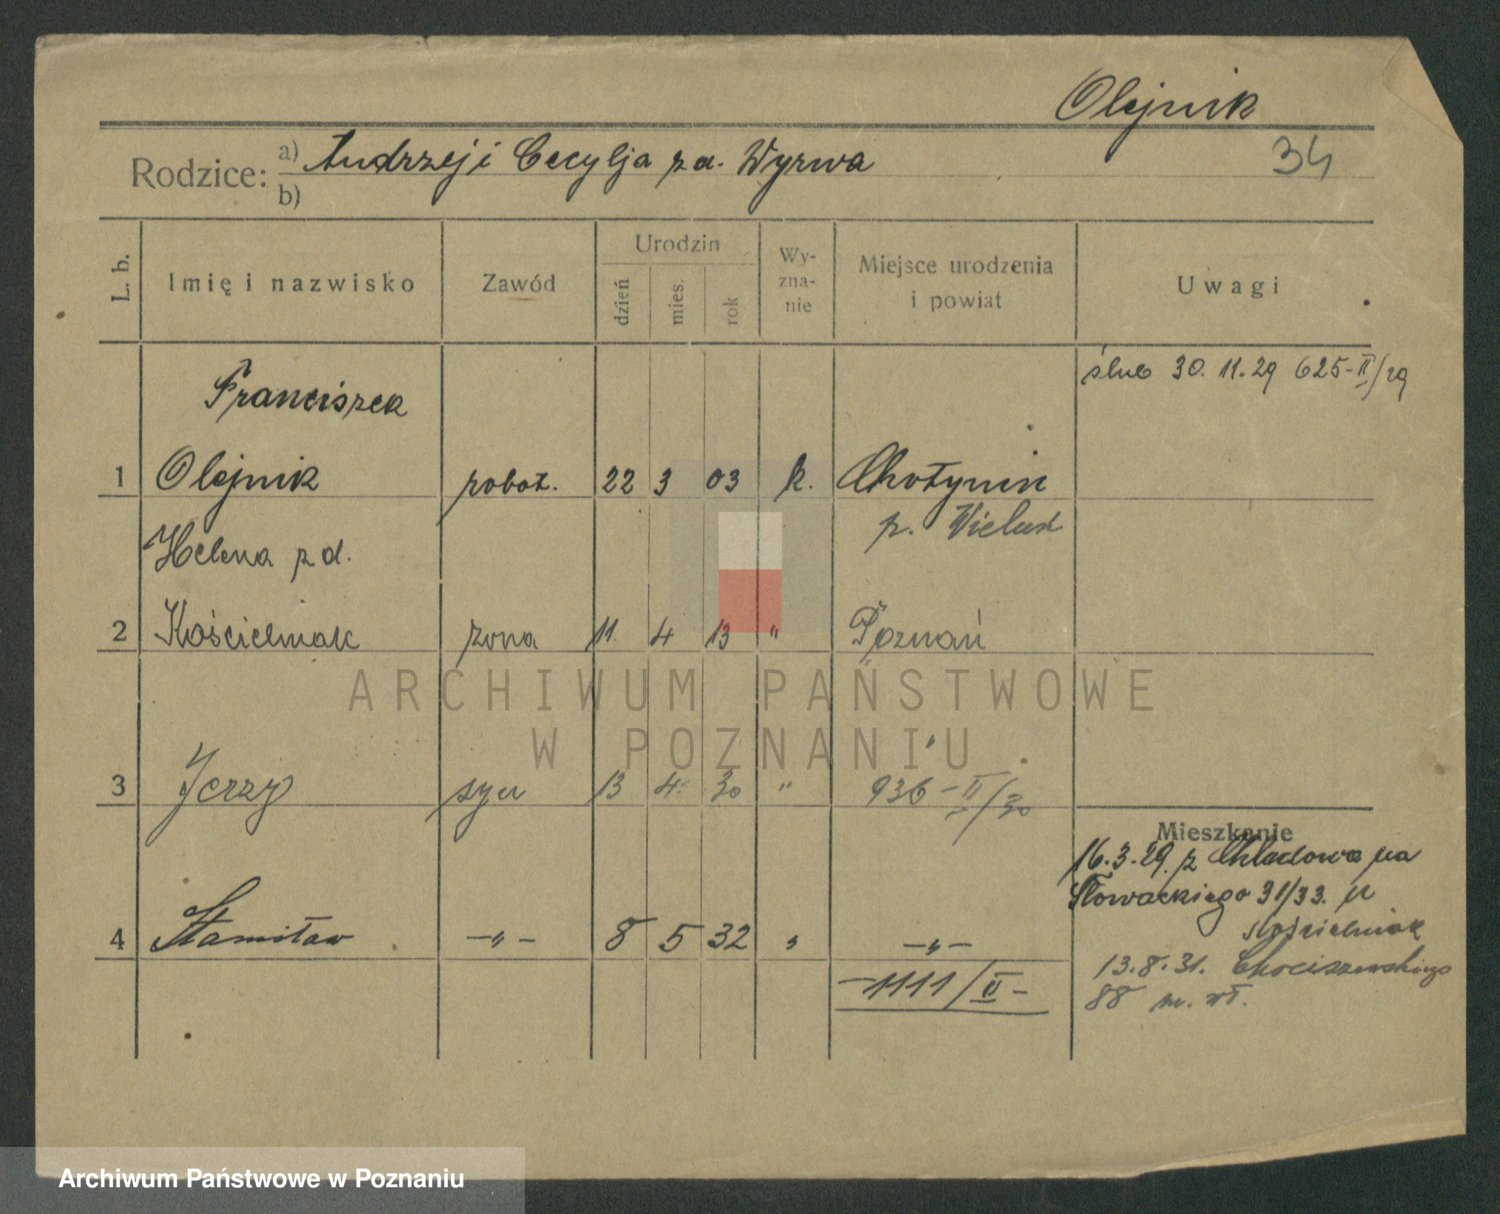 Olejnik
34
Rodzice: a) Andrzej i Cecylja z d. Wyrwa
b)
L. b. Imię i nazwisko Zawód Urodzin dzień mies. rok Wy-zna-nie Miejsce urodzenia i powiat Uwagi
ślub 30. 11. 29 625-II/29
Franciszek
1 Olejnik robot. 22 3 03 k. Chotynin
p. Wieluń
Helena z d.
2 Kościelniak żona 11. 4 13 " Poznań
ARCHIWUM PAŃSTWOWE
W POZNANIU
"
3 Jerzy syn 13 4. 30 " 936-II/30
Mieszkanie
16.3.29. z Chludowa na
Słowackiego 31/33. u
Kościelniak
4 Stanisław -„- 8 5 32 „ -„-
13.8.31. Chociszewskiego
88 m. wł.
-1111/II-
Archiwum Państwowe w Poznaniu